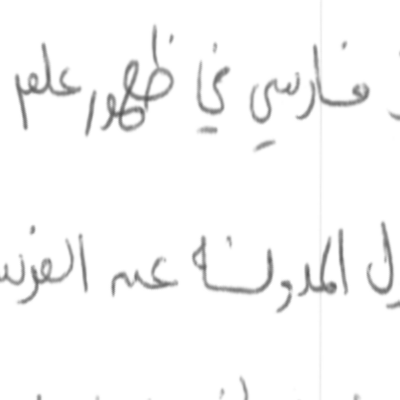 فارسي في ظهور علم
المدونة عن الفرس